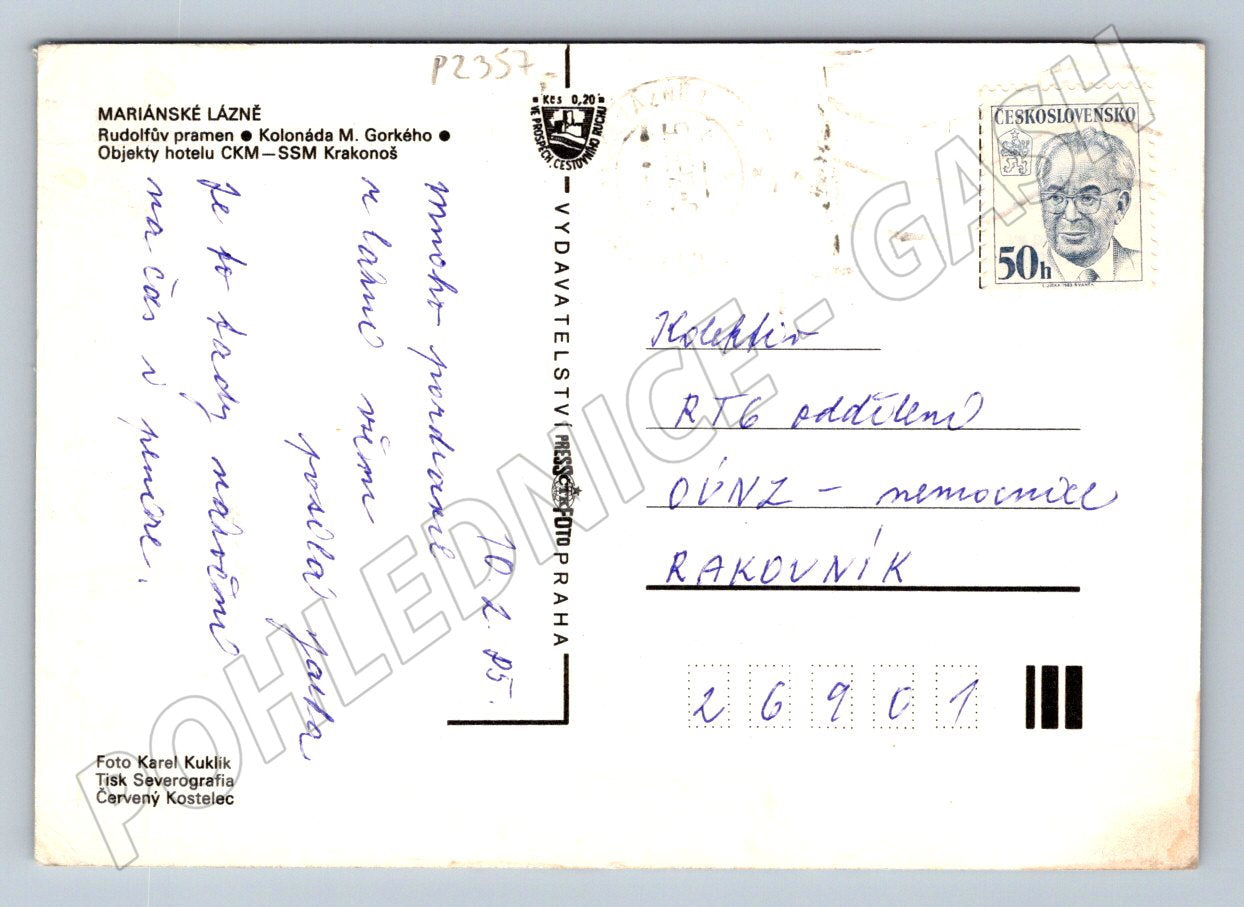 P2357
MARIÁNSKÉ LÁZNĚ
Rudolfův pramen ● Kolonáda M. Gorkého ●
Objekty hotelu CKM—SSM Krakonoš
Kčs 0,20
VE PROSPĚCH CESTOVNÍHO RUCHU
ČESKOSLOVENSKO
50h
10. 2. 85.
mnoho pozdravů
z lázní všem
posílá Jarka
Je to tady nádherné
na čas i peníze.
VYDAVATELSTVÍ PRESSFOTO PRAHA
ČTK
Kolektiv
RTG oddělení
OÚNZ - nemocnice
RAKOVNÍK
26901
Foto Karel Kuklík
Tisk Severografia
Červený Kostelec
POHLEDNICE - GASH